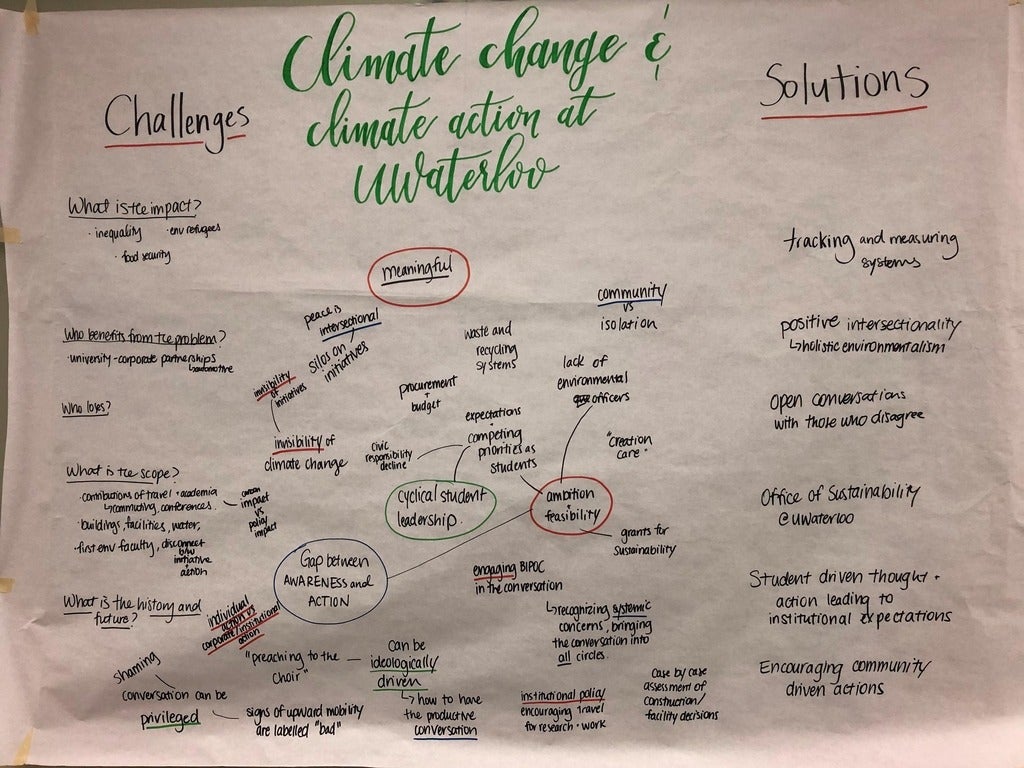 Climate change &
climate action at
UWaterloo
Challenges
What is the impact?
· inequality · env refugees
· food security
Who benefits from the problem?
· university-corporate partnerships
↳automotive
Who loses?
What is the scope?
· contributions of travel + academia
↳ commuting, conferences.
carbon
impact
vs
policy
impact
· buildings, facilities, water,
· first env faculty, disconnect
b/w
initiative
+
action
What is the history and
future?
individual
action vs
corporate/institutional
action
shaming
conversation can be
privileged
signs of upward mobility
are labelled "bad"
"preaching to the
choir"
can be
ideologically
driven
↳ how to have
the productive
conversation
meaningful
peace is
intersectional
silos on
initiatives
invisibility
of
initiatives
invisibility of
climate change
waste and
recycling
systems
procurement
+
budget
expectations
+
competing
priorities as
students
civic
responsibility
decline
cyclical student
leadership.
community
vs
isolation
lack of
environmental
officers
"creation
care"
ambition
+
feasibility
grants for
sustainability
Gap between
AWARENESS and
ACTION
engaging BIPOC
in the conversation
↳recognizing systemic
concerns, bringing
the conversation into
all circles.
institutional policy
encouraging travel
for research + work
case by case
assessment of
construction/
facility decisions
Solutions
tracking and measuring
systems
positive intersectionality
↳holistic environmentalism
open conversations
with those who disagree
Office of Sustainability
@UWaterloo
Student driven thought +
action leading to
institutional expectations
Encouraging community
driven actions